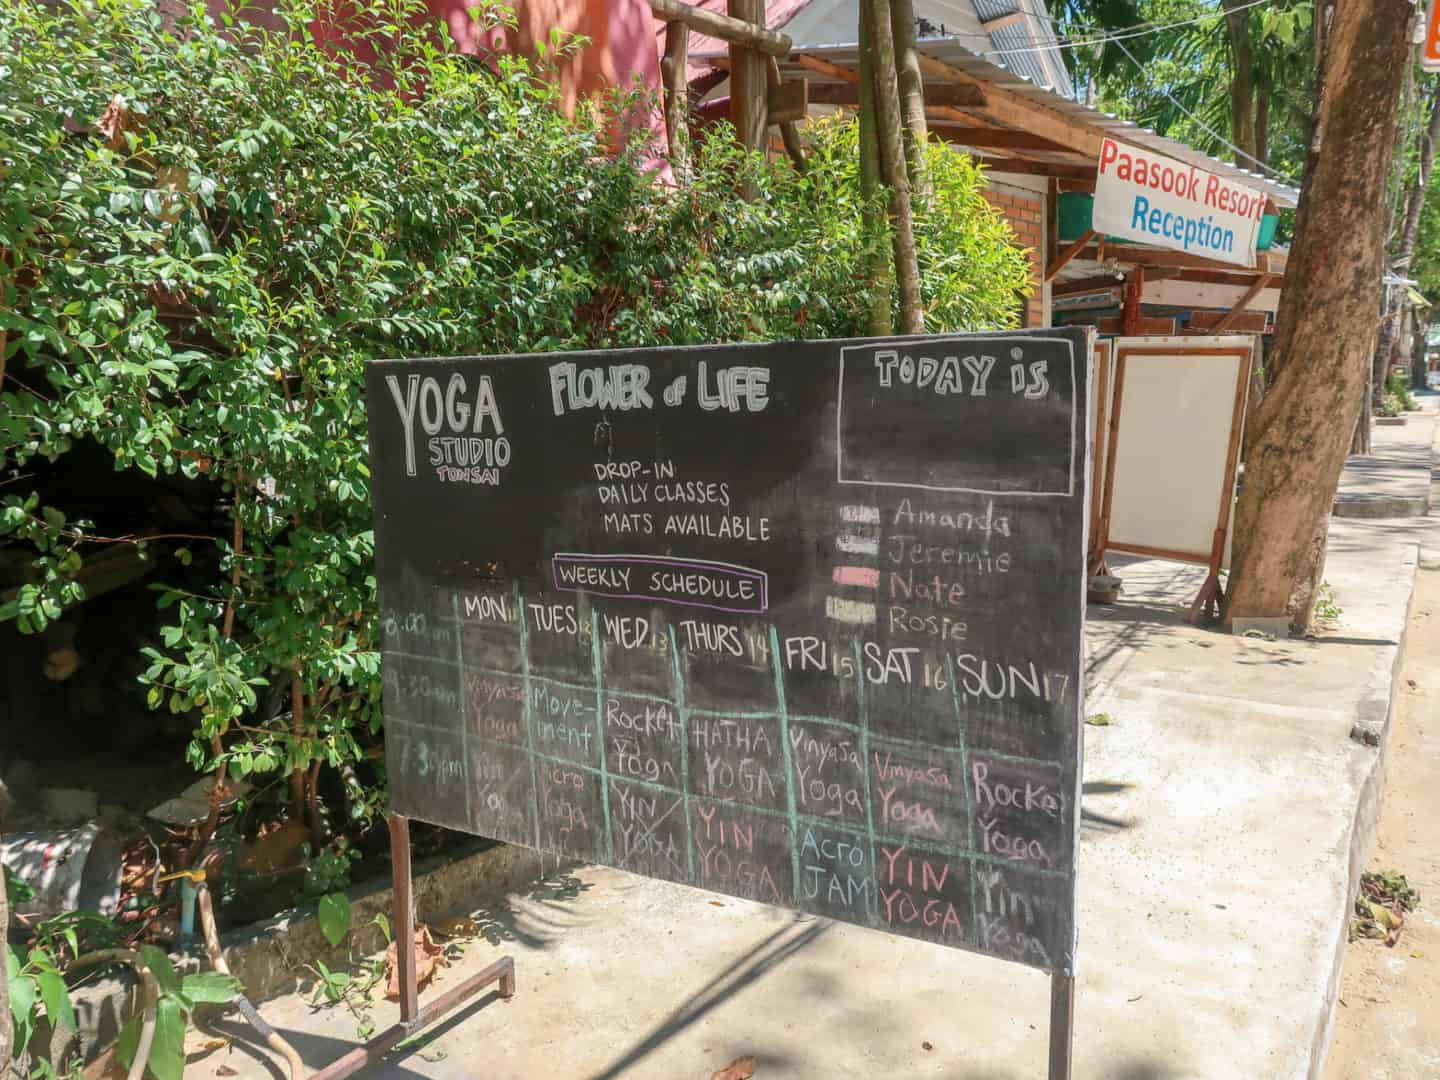 Paasook Resort
Reception
YOGA
STUDIO
TONSAI
FLOWER of LIFE
TODAY iS
DROP-IN
DAILY CLASSES
MATS AVAILABLE
Amanda
Jeremie
Nate
Rosie
WEEKLY SCHEDULE
MON TUES WED 13 THURS 14 FRI 15 SAT 16 SUN 17
Vinyasa Yoga
Move-
ment
Rocket
Yoga
HATHA
YOGA
Vinyasa
Yoga
Vinyasa
Yoga
Rocke
Yoga
Acro
Yoga
YIN
YOGA
YIN
YOGA
Acro
JAM
YIN
YOGA
Yin
Yoga